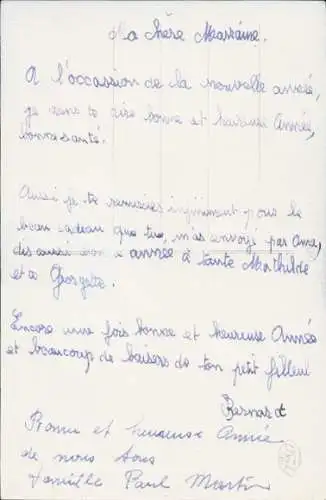 Ma chère Marraine.
A l'occasion de la nouvelle année,
je viens te dire bonne et heureuse Année,
bonne santé.
Aussi je te remercie infiniment pour le
beau cadeau que tu m'as envoyé par
dis aussi bonne année à tante Mathilde
et a Georgette.
Encore une fois bonne et heureuse Année
et beaucoup de baisers de ton petit filleul
Bernard
Bonne et heureuse Année
de nous tous
famille Paul Martin